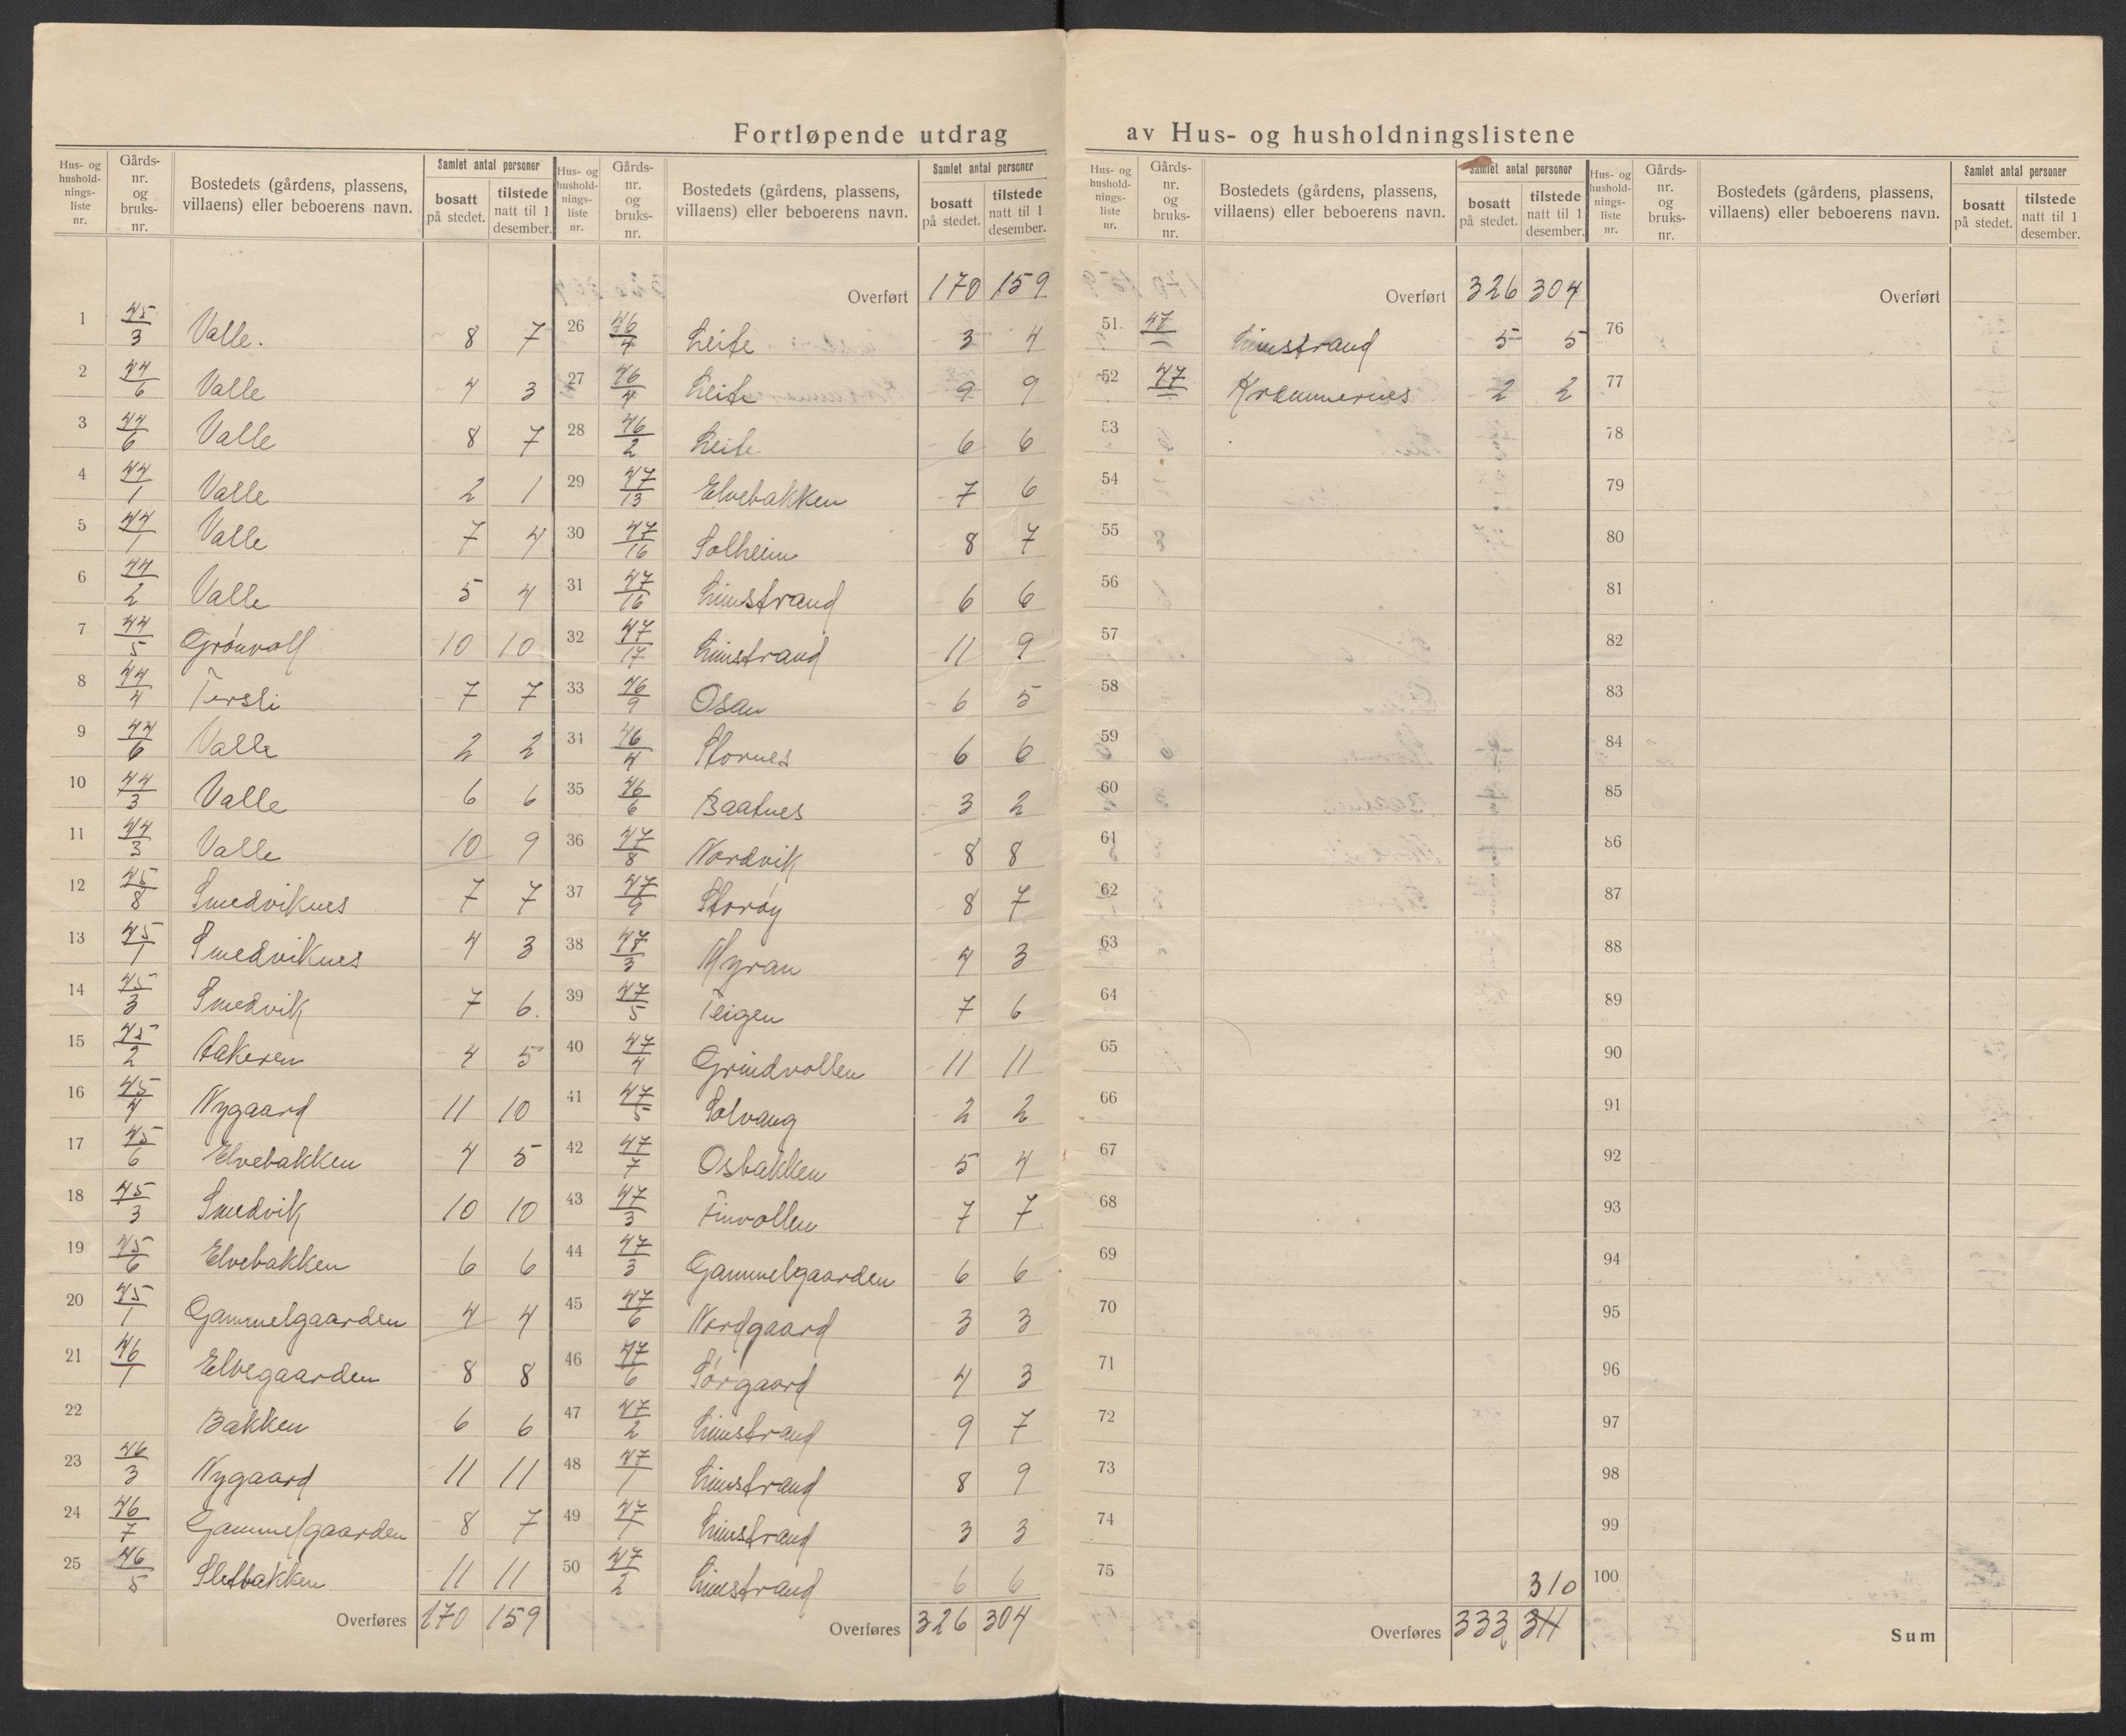 Fortløpende utdrag av Hus- og husholdningslistene
Hus- og hushold- nings- liste nr. Gårds- nr. og bruks- nr. Bostedets (gårdens, plassens, villaens) eller beboerens navn. Samlet antal personer bosatt på stedet. tilstede natt til 1 desember.
1 45/3 Valle. 8 7
2 44/6 Valle 4 3
3 44/6 Valle 8 7
4 44/1 Valle 2 1
5 44/1 Valle 7 4
6 44/2 Valle 5 4
7 44/5 Grönvoll 10 10
8 44/4 Tersli 7 7
9 44/6 Valle 2 2
10 44/3 Valle 6 6
11 44/3 Valle 10 9
12 45/8 Smedviknes 7 7
13 45/1 Smedviknes 4 3
14 45/3 Smedvik 7 6.
15 45/2 Aakeren 4 5
16 45/4 Nygaard 11 10
17 45/6 Elvebakken 4 5
18 45/3 Smedvik 10 10
19 45/6 Elvebakken 6 6
20 45/1 Gammelgaarden 4 4
21 46/1 Elvegaarden 8 8
22 Bakken 6 6
23 46/3 Nygaard 11 11
24 46/7 Gammelgaarden 8 7
25 46/5 Sletbakken 11 11
Overføres 170 159
Hus- og hushold- nings- liste nr. Gårds- nr. og bruks- nr. Bostedets (gårdens, plassens, villaens) eller beboerens navn. Samlet antal personer bosatt på stedet. tilstede natt til 1 desember.
Overført 170 159
26 46/4 Leite 3 4
27 46/4 Leite 9 9
28 46/2 Leite 6 6
29 47/13 Elvebakken 7 6
30 47/16 Solheim 8 7
31 47/16 Limstrand 6 6
32 47/17 Limstrand 11 9
33 46/9 Osan 6 5
34 46/4 Stornes 6 6
35 46/6 Baatnes 3 2
36 47/8 Nordvik 8 8
37 47/9 Storöy 8 7
38 47/3 Myran 4 3
39 47/5 Teigen 7 6
40 47/4 Grindvollen 11 11
41 47/5 Solvang 2 2
42 47/7 Osbakken 5 4
43 47/3 Finvollen 7 7
44 47/3 Gammelgaarden 6 6
45 47/6 Nordgaard 3 3
46 47/6 Sörgaard 4 3
47 47/2 Limstrand 9 7
48 47/1 Limstrand 8 9
49 47/1 Limstrand 3 3
50 47/2 Limstrand 6 6
Overføres 326 304
Hus- og hushold- nings- liste nr. Gårds- nr. og bruks- nr. Bostedets (gårdens, plassens, villaens) eller beboerens navn. Samlet antal personer bosatt på stedet. tilstede natt til 1 desember.
Overført 326 304
51. 47 Limstrand 5 5
52 47 Kræmmernes 2 2
53
54
55
56
57
58
59
60
61
62
63
64
65
66
67
68
69
70
71
72
73
74
75 310
Overføres 333 311
Hus- og hushold- nings- liste nr. Gårds- nr. og bruks- nr. Bostedets (gårdens, plassens, villaens) eller beboerens navn. Samlet antal personer bosatt på stedet. tilstede natt til 1 desember.
Overført
76
77
78
79
80
81
82
83
84
85
86
87
88
89
90
91
92
93
94
95
96
97
98
99
100
Sum